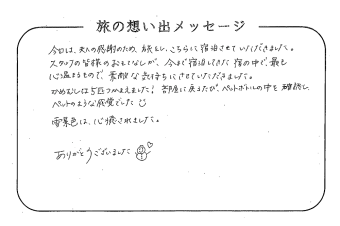 旅の想い出メッセージ
今日は、夫の感謝のため、旅をし、こちらに宿泊させていただきました。
スタッフの皆様のおもてなしが、今まで宿泊してきた宿の中で、最も
心温まるもので、素敵な気持ちにさせていただきました。
かめむしは5匹つかまえました! 部屋に戻るたび、ペットボトルの中を確認し、
ペットのような感覚でした
雪景色は、心癒されました。
ありがとうございました